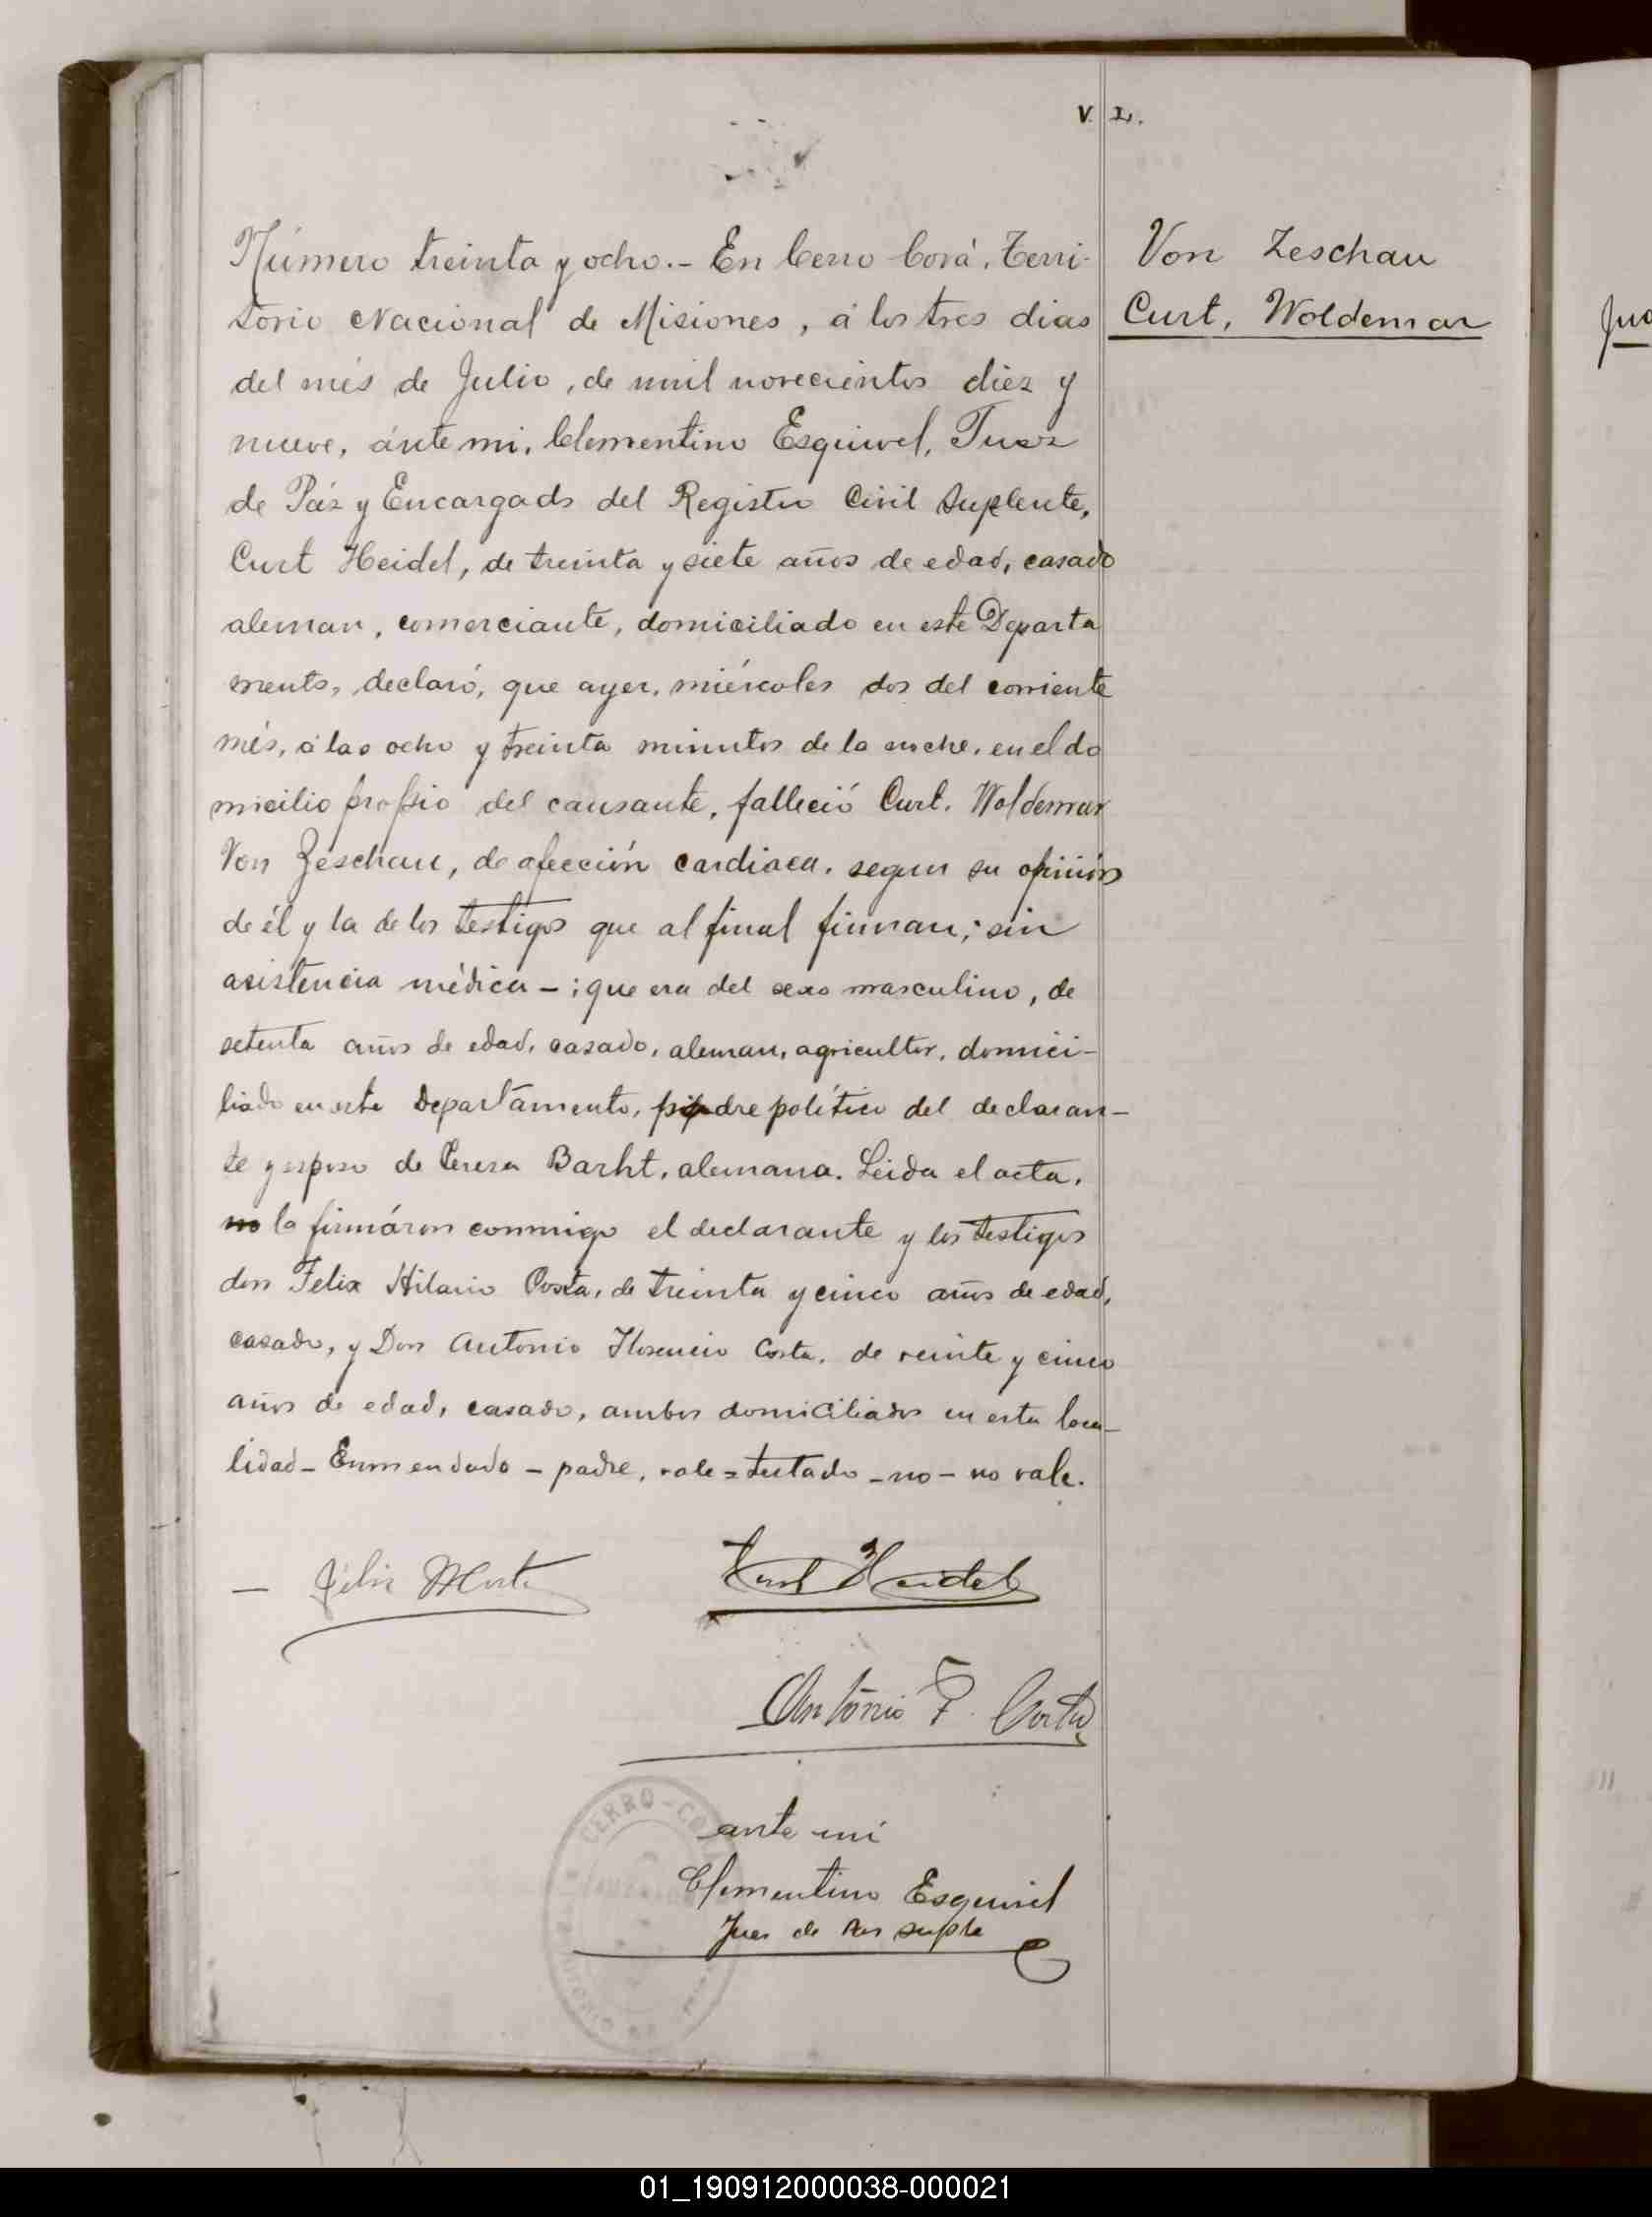 V. L.
Von Zeschau
Curt, Woldemar
Número treinta y ocho.- En Cerro Corá, Terri-
torio Nacional de Misiones, á los tres dias
del més de Julio, de mil novecientos diez y
nueve, ánte mi, Clementino Esquivel, Juez
de Páz y Encargado del Registro Civil Suplente,
Curt Heidel, de treinta y siete años de edad, casado
aleman, comerciante, domiciliado en este Departa
mento, declaró, que ayer, miércoles dos del corriente
més, á las ocho y treinta minutos de la noche, en el do
micilio propio del causante, falleció Curt. Woldemar
Von Zeschau, de afección cardiaca, segun su opinión
de él y la de los testigos que al final firman; sin
asistencia médica - ; que era del sexo masculino, de
setenta años de edad, casado, aleman, agricultor, domici-
liado en este Departamento, padre político del declaran-
te y esposo de Teresa Barht, alemana. Leida el acta,
no la firmáron conmigo el declarante y los testigos
don Felix Hilario Costa, de treinta y cinco años de edad,
casado, y Don Antonio Florencio Costa, de veinte y cinco
años de edad, casado, ambos domiciliados en esta loca-
lidad - Enmendado - padre, vale = testado - no - no vale.
Curt Heidel
Antonio F. Costa
CERRO-CO
ante mi
Clementino Esquivel
Juez de Paz suplte
01_190912000038-000021